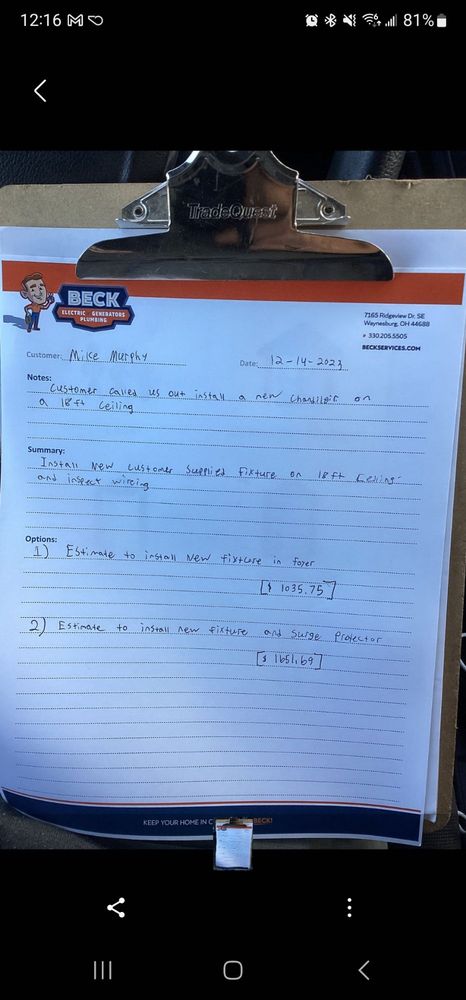 12:16
81%
TradeQuest
BECK
ELECTRIC GENERATORS
PLUMBING
7165 Ridgeview Dr. SE
Waynesburg, OH 44688
330.205.5505
BECKSERVICES.COM
Customer: Mike Murphy
Date: 12-14-2023
Notes:
Customer called us out install a new chandileir on
a 18 ft ceiling
Summary:
Install New customer supplied fixture on 18 ft ceiling
and inspect wireing
Options:
1) Estimate to install New fixture in foyer
[$ 1035.75]
2) Estimate to install new fixture and surge Protector
[$ 1651.69]
KEEP YOUR HOME IN BECK!